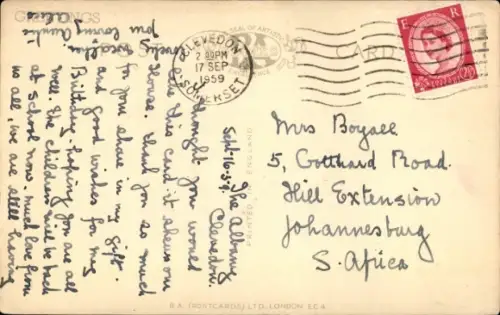 GREETINGS
CARD
CLEVEDON
2 PM
17 SEP
1959
SOMERSET
E R
The Albany
Clevedon.
Sept. 16. 59.
I thought you would
like this card it shews our
House. Thank you so much
for you share in my gift.
and good wishes for my
Birthday hoping you are all
well. The children will be back
at school now. much love from
us all, we are still having
lovely weather
your loving Auntie
Mrs Boyall
5, Gotthard Road.
Hill Extension
Johannesburg
S. Africa
PRINTED IN ENGLAND
B.A. (POSTCARDS) LTD., LONDON S.C.4